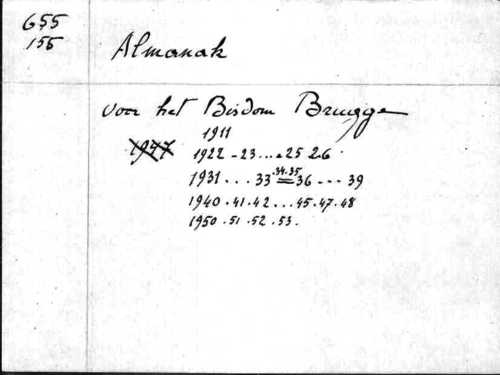 655
155
Almanak
voor het Bisdom Brugge
1911
1947 1922 - 23 ... 25 26
34.35
1931 ... 33 = 36 --- 39
1940 . 41 . 42 ... 45 . 47 . 48
1950 . 51 . 52 . 53 .